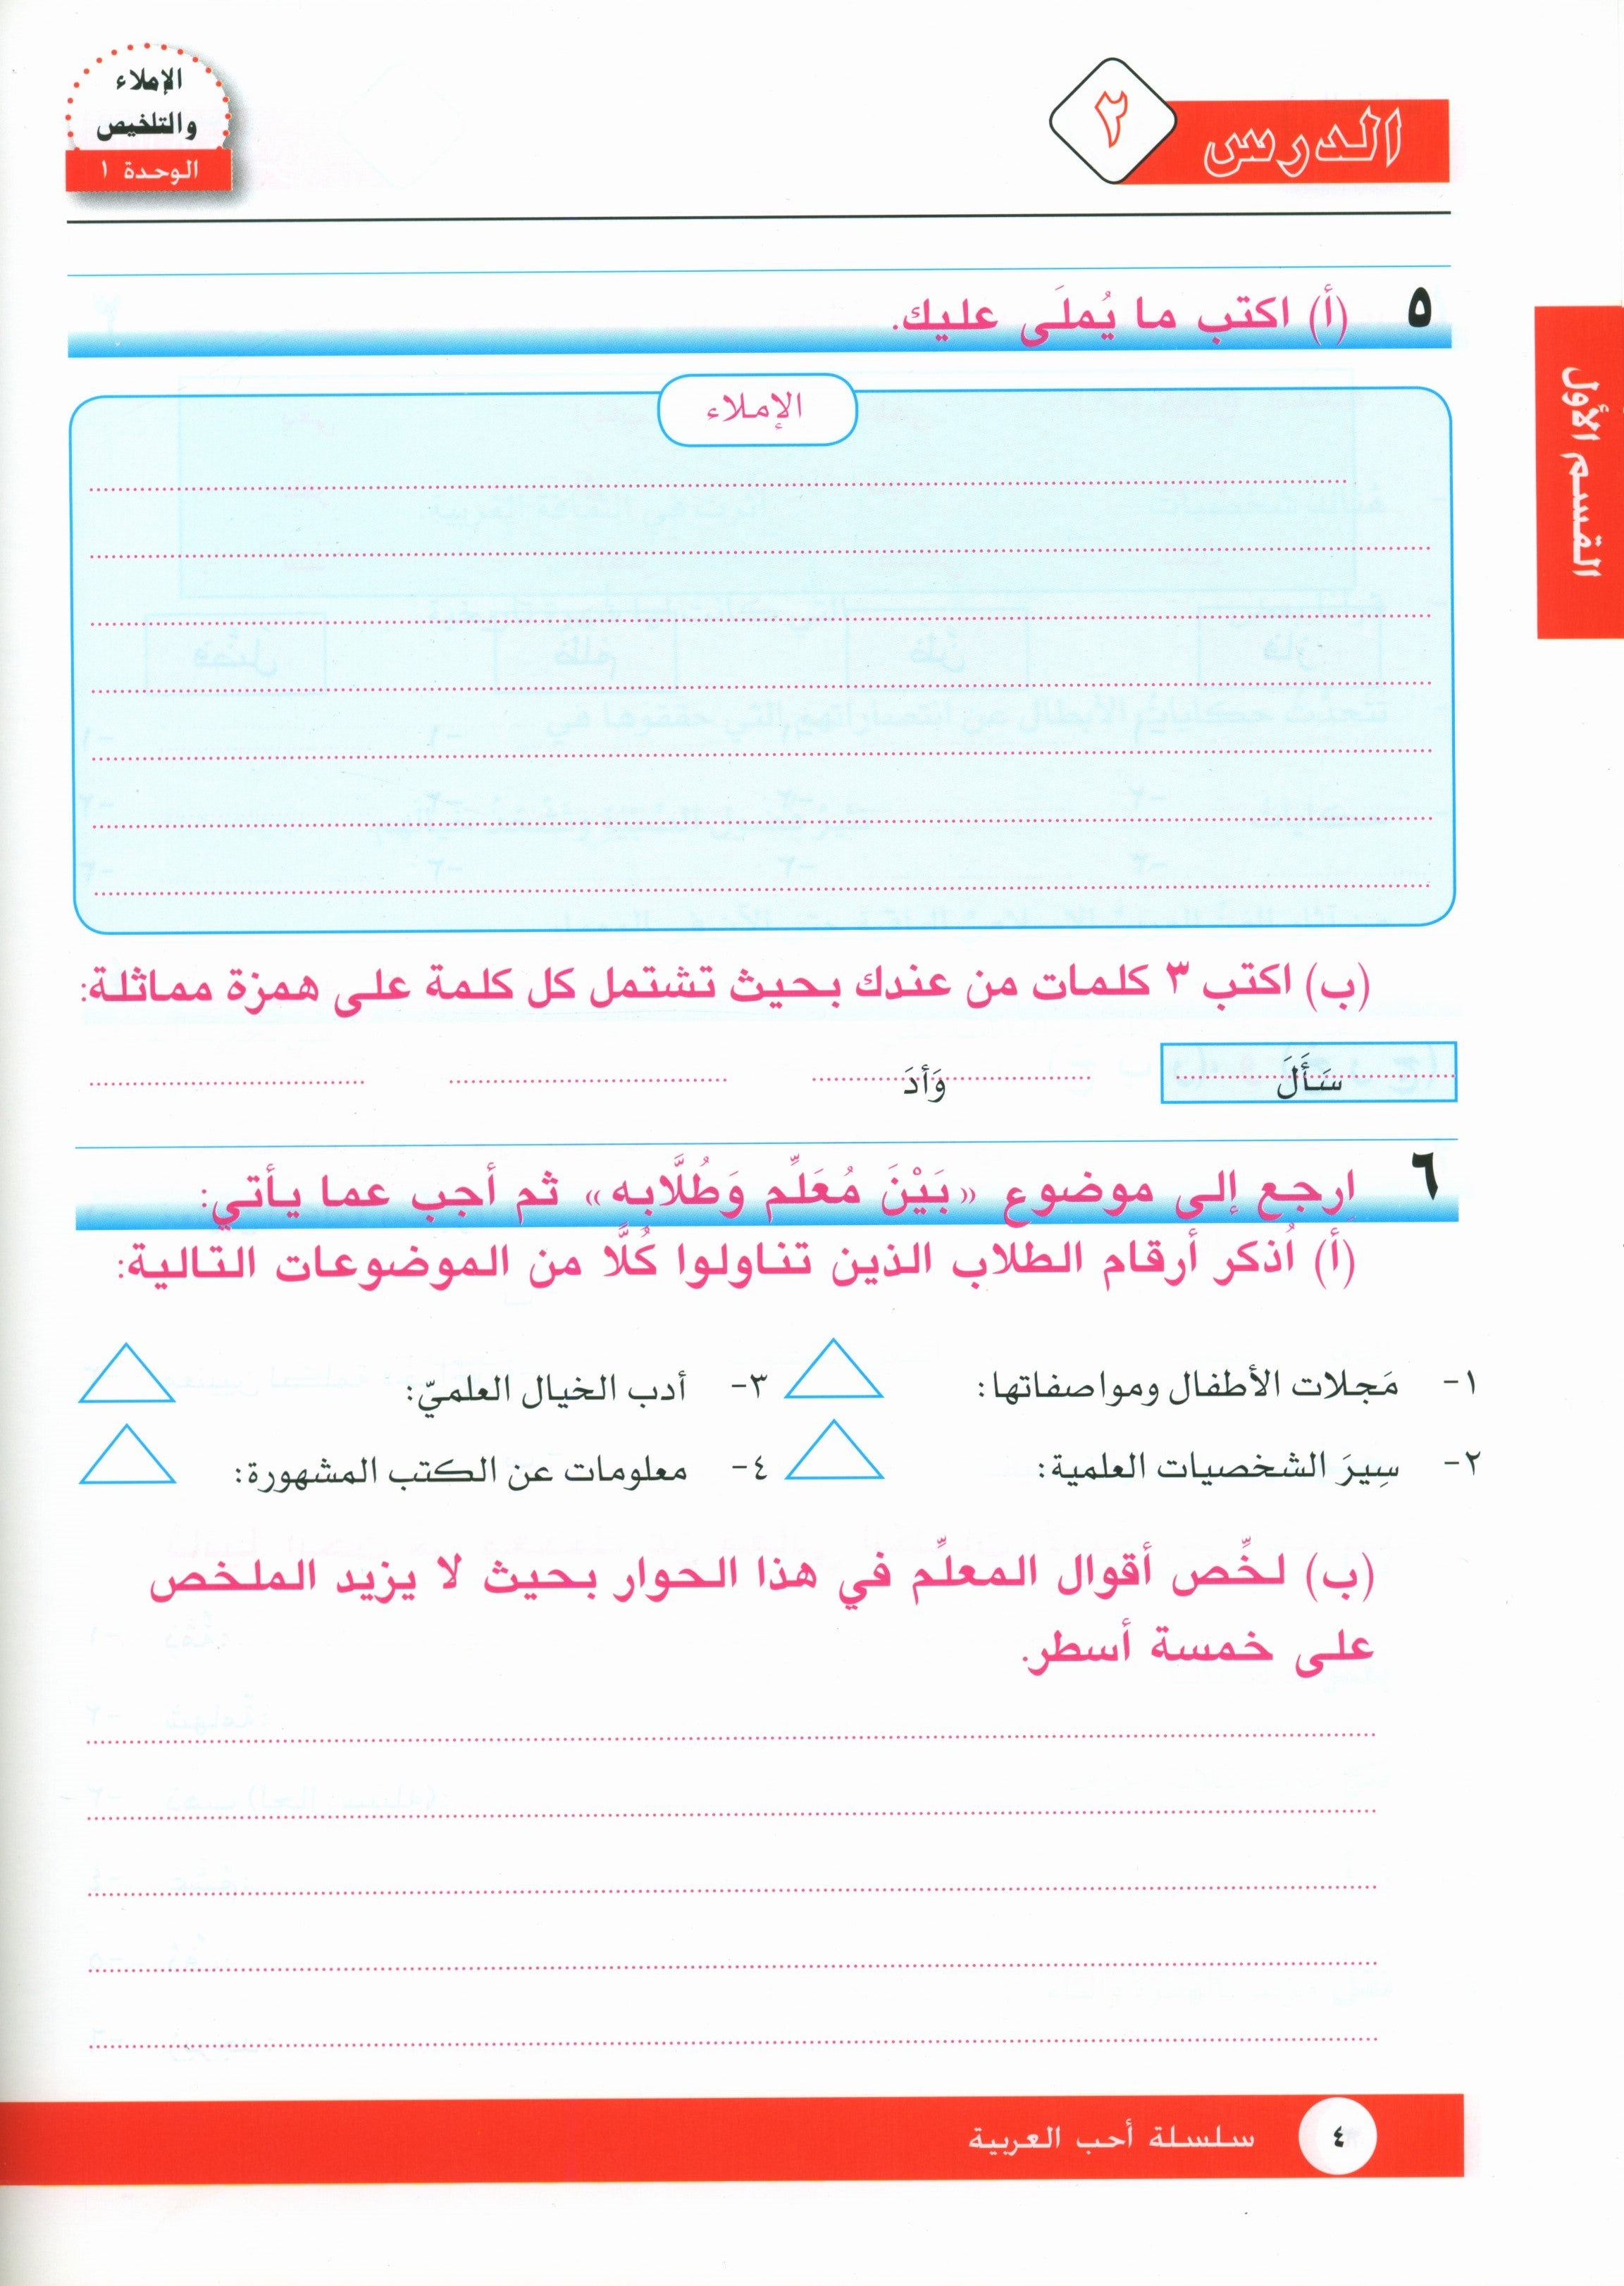 الدرس ٢
الإملاء
والتلخيص
الوحدة ١
القسم الأول
٥ (أ) اكتب ما يُملَى عليك.
الإملاء
(ب) اكتب ٣ كلمات من عندك بحيث تشتمل كل كلمة على همزة مماثلة:
سَأَلَ وَأدَ
٦ اِرجع إلى موضوع «بَيْنَ مُعَلِّم وَطُلَّابه» ثم أجب عما يأتي:
(أ) اُذكر أرقام الطلاب الذين تناولوا كُلًّا من الموضوعات التالية:
١- مَجلات الأطفال ومواصفاتها: ٣- أدب الخيال العلميّ:
٢- سِيرَ الشخصيات العلمية: ٤- معلومات عن الكتب المشهورة:
(ب) لخِّص أقوال المعلِّم في هذا الحوار بحيث لا يزيد الملخص
على خمسة أسطر.
٤ سلسلة أحب العربية